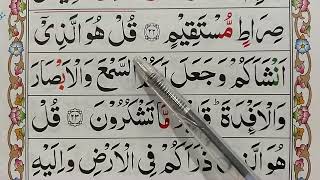 صِرَاطٍ مُّسْتَقِيْمٍ ﴿۲۲﴾ قُلْ هُوَ الَّذِیْۤ
اَنْشَاَكُمْ وَ جَعَلَ السَّمْعَ وَ الْاَبْصَارَ
وَ الْاَفْـِٕدَةَ ؕ مَّا تَشْكُرُوْنَ ﴿۲۳﴾ قُلْ
هُوَ الَّذِیْ ذَرَاَكُمْ فِی الْاَرْضِ وَ اِلَیْهِ